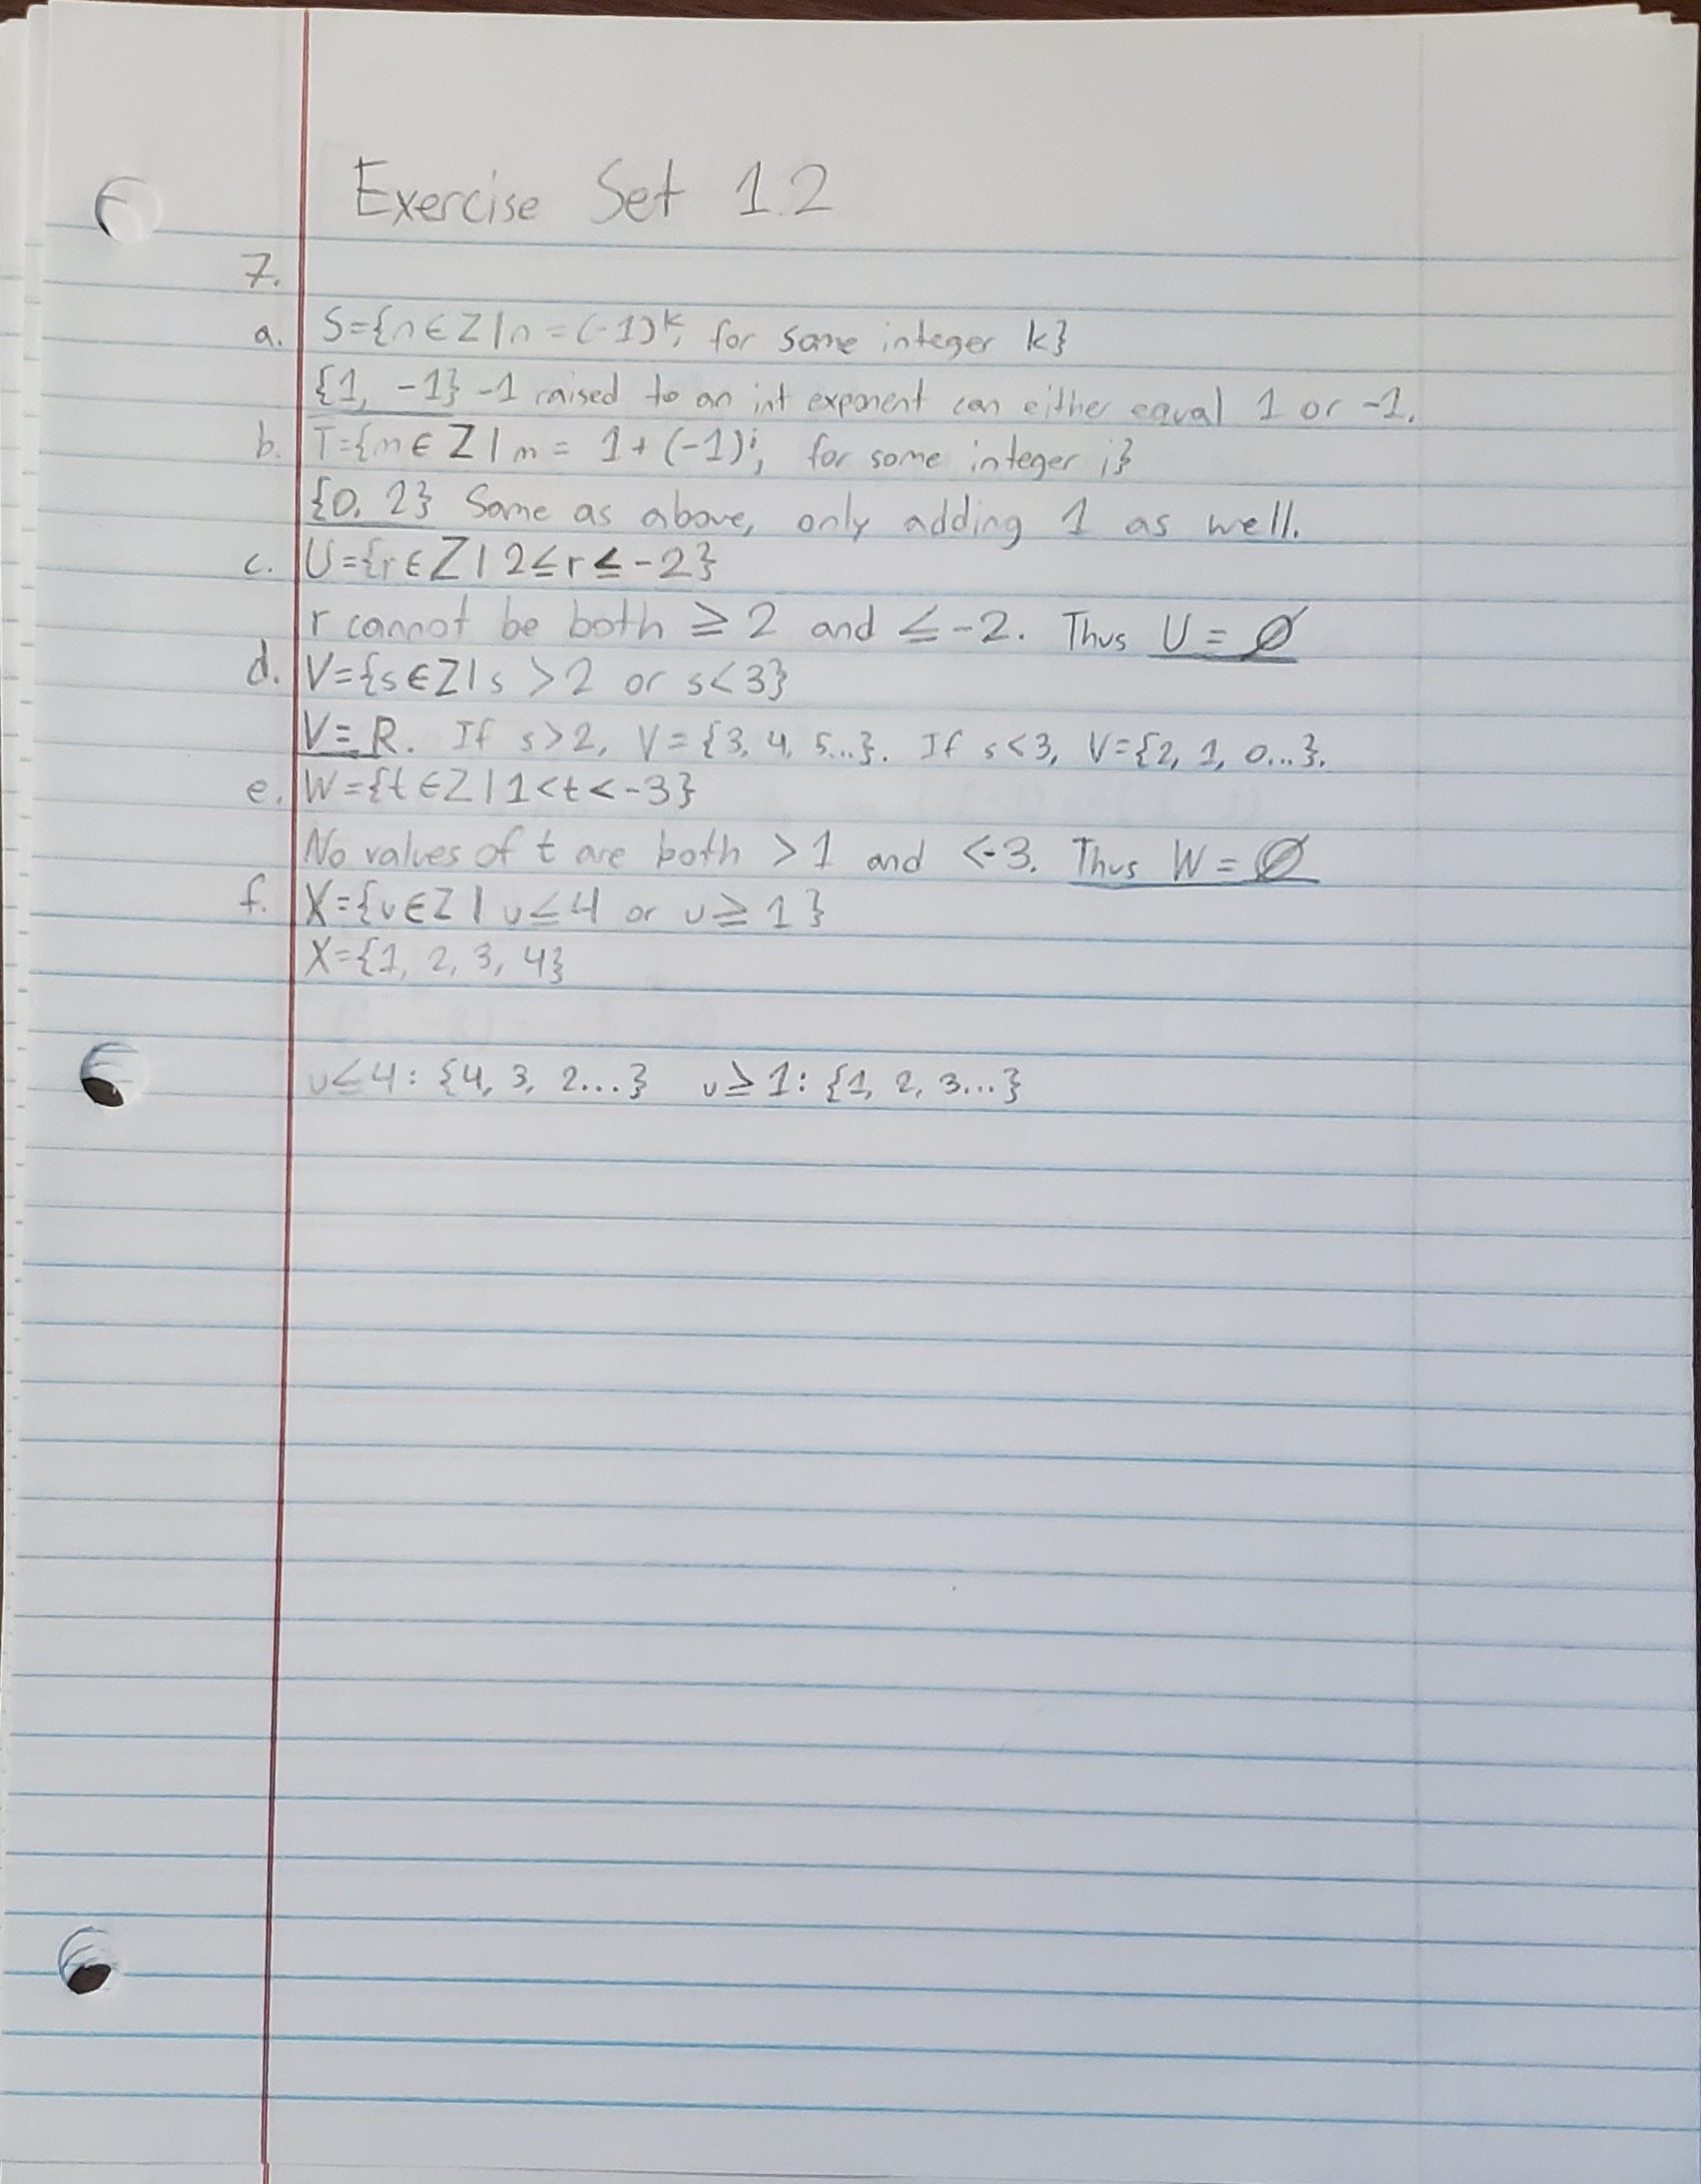 Exercise Set 1.2
7.
a. S={n∈Z|n=(-1)ᵏ, for some integer k}
{1, -1} -1 raised to an int exponent can either equal 1 or -1.
b. T={m∈Z|m= 1+(-1)ⁱ, for some integer i}
{0, 2} Same as above, only adding 1 as well.
c. U={r∈Z|2≤r≤-2}
r cannot be both ≥2 and ≤-2. Thus U=∅
d. V={s∈Z|s>2 or s<3}
V=R. If s>2, V={3, 4, 5...}. If s<3, V={2, 1, 0...}.
e. W={t∈Z|1<t<-3}
No values of t are both >1 and <-3. Thus W=∅
f. X={u∈Z|u≤4 or u≥1}
X={1, 2, 3, 4}
u≤4: {4, 3, 2...} u≥1: {1, 2, 3...}